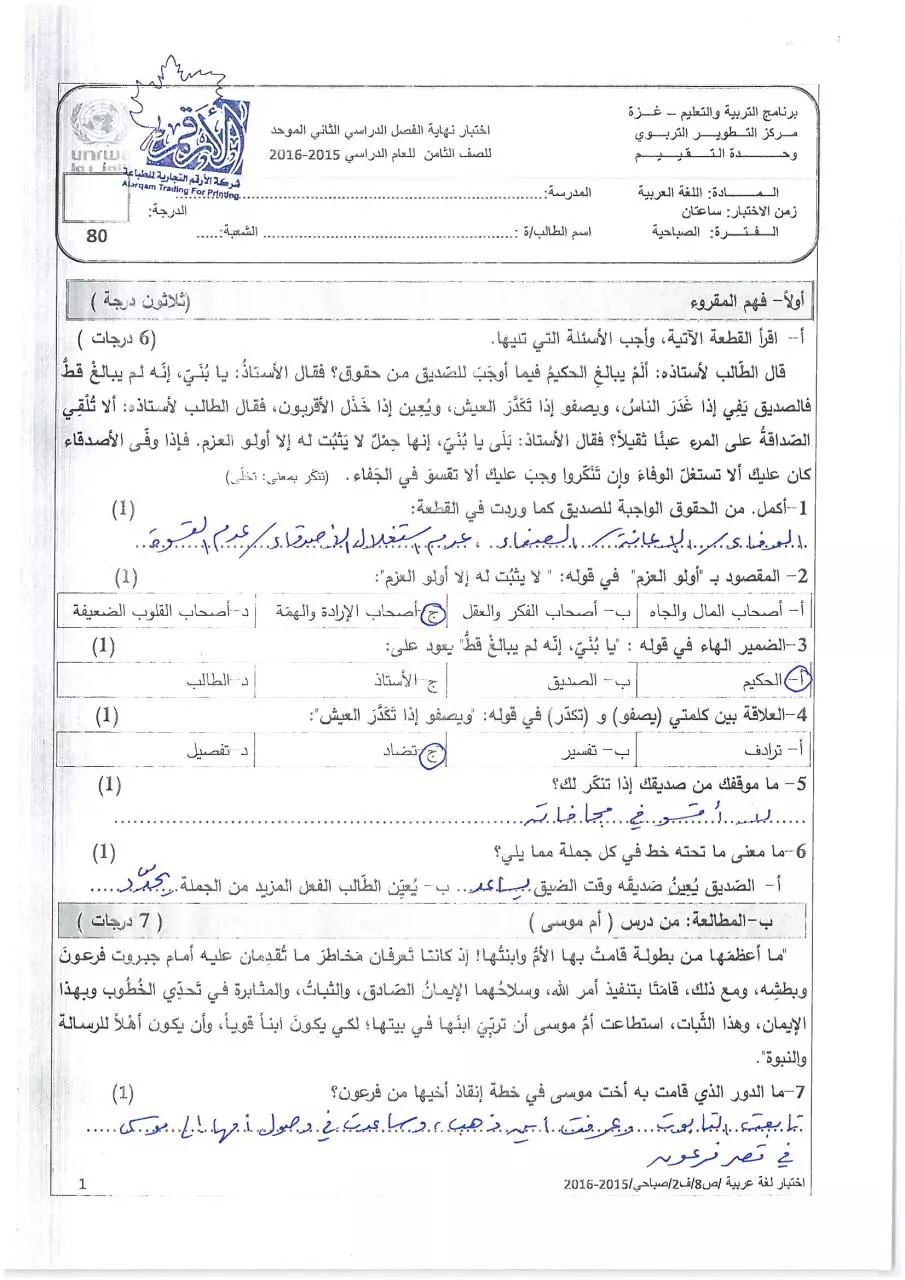 برنامج التربية والتعليم – غزة
مركز التطوير التربوي
وحدة التقييم
اختبار نهاية الفصل الدراسي الثاني الموحد
للصف الثامن للعام الدراسي 2015-2016
unrwa
الأرقم
شركة الأرقم التجارية للطباعة
Alarqam Trading For Printing
المـــــادة: اللغة العربية
زمن الاختبار: ساعتان
الفـتـــرة: الصباحية
المدرسة:
اسم الطالب/ة :
الشعبة:
الدرجة:
80
أولاً- فهم المقروء (ثلاثون درجة )
أ- اقرأ القطعة الآتية، وأجب الأسئلة التي تليها. (6 درجات )
قال الطّالب لأستاذه: ألَمْ يبالغِ الحكيمُ فيما أوجَبَ للصّديق من حقوق؟ فقال الأستاذُ: يا بُنَيّ، إنّه لم يبالغْ قطُّ
فالصديق يَفِي إذا غَدَرَ الناسُ، ويصفو إذا تَكَدَّرَ العيش، ويُعِين إذا خَذَل الأقربون، فقال الطالب لأستاذه: ألا تُلْقِي
الصّداقةُ على المرءِ عبئًا ثقيلاً؟ فقال الأستاذ: بَلَى يا بُنَيّ، إنها حِمْلٌ لا يَثبُت له إلا أولو العزم. فإذا وفّى الأصدقاء
كان عليك ألا تستغلّ الوفاءَ وإن تَنَكّروا وجبَ عليك ألا تقسوَ في الجَفاء. (تنكّر بمعنى: تخلّى)
1-أكمل. من الحقوق الواجبة للصديق كما وردت في القطعة: (1)
الوفاء/ الإعانة/ الصفاء، عدم استغلال الأصدقاء/ عدم القسوة
2- المقصود بـ "أولو العزم" في قوله: " لا يثبُت له إلا أولو العزم": (1)
أ- أصحاب المال والجاه ب- أصحاب الفكر والعقل ج-أصحاب الإرادة والهمّة د-أصحاب القلوب الضعيفة
3-الضمير الهاء في قوله : "يا بُنَيّ، إنّه لم يبالغْ قطُّ" يعود على: (1)
أ-الحكيم ب- الصديق ج-الأستاذ د-الطالب
4-العلاقة بين كلمتي (يصفو) و (تكدّر) في قوله: "ويصفو إذا تَكَدَّرَ العيش": (1)
أ- ترادف ب- تفسير ج-تضاد د- تفصيل
5- ما موقفك من صديقك إذا تنكّر لك؟ (1)
لا أقسو في مجافاته
6-ما معنى ما تحته خط في كل جملة مما يلي؟ (1)
أ- الصّديق يُعِينُ صديقَه وقت الضيق يساعد ب- يُعيّن الطّالب الفعل المزيد من الجملة. يحدّد
ب-المطالعة: من درس ( أم موسى ) ( 7 درجات )
"ما أعظمَها من بطولة قامتْ بها الأمُّ وابنتُها! إذ كانتا تَعرفان مَخاطرَ ما تُقدِمان عليه أمام جبروت فرعونَ
وبطشِه، ومع ذلك، قامَتَا بتنفيذ أمر الله، وسلاحُهما الإيمانُ الصّادق، والثباتُ، والمثابرة في تَحدِّي الخُطُوب وبهذا
الإيمان، وهذا الثّبات، استطاعت أمُّ موسى أن تربّيَ ابنَها في بيتها؛ لكي يكونَ ابناً قوياً، وأن يكون أهْلاً للرسالة
والنبوة".
7-ما الدور الذي قامت به أخت موسى في خطة إنقاذ أخيها من فرعون؟ (1)
تابعت التابوت وعرفت أين ذهب، وساعدت في وصول أمها إلى موسى
في قصر فرعون
اختبار لغة عربية /ص8/ف2/صباحي/2015-2016 1